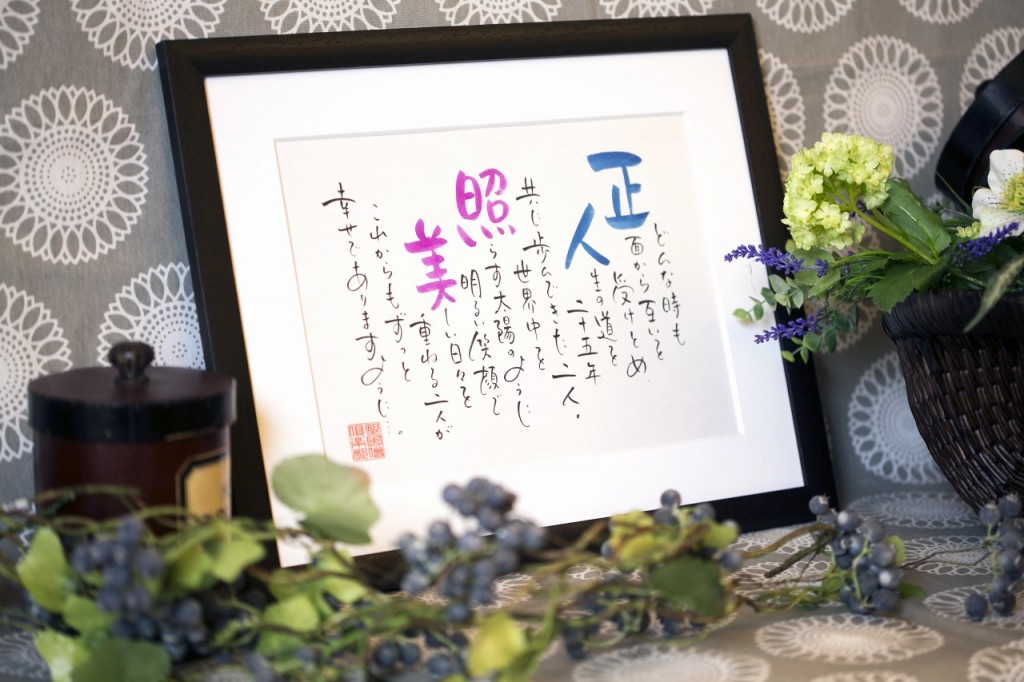 どんな時も
正面から互いを
受けとめ、
人生の道を
二十五年
共に歩んできた二人。
世界中を
照らす太陽のように
明るい笑顔で
美しい日々を
重ねる二人が
これからもずっと
幸せでありますように……。